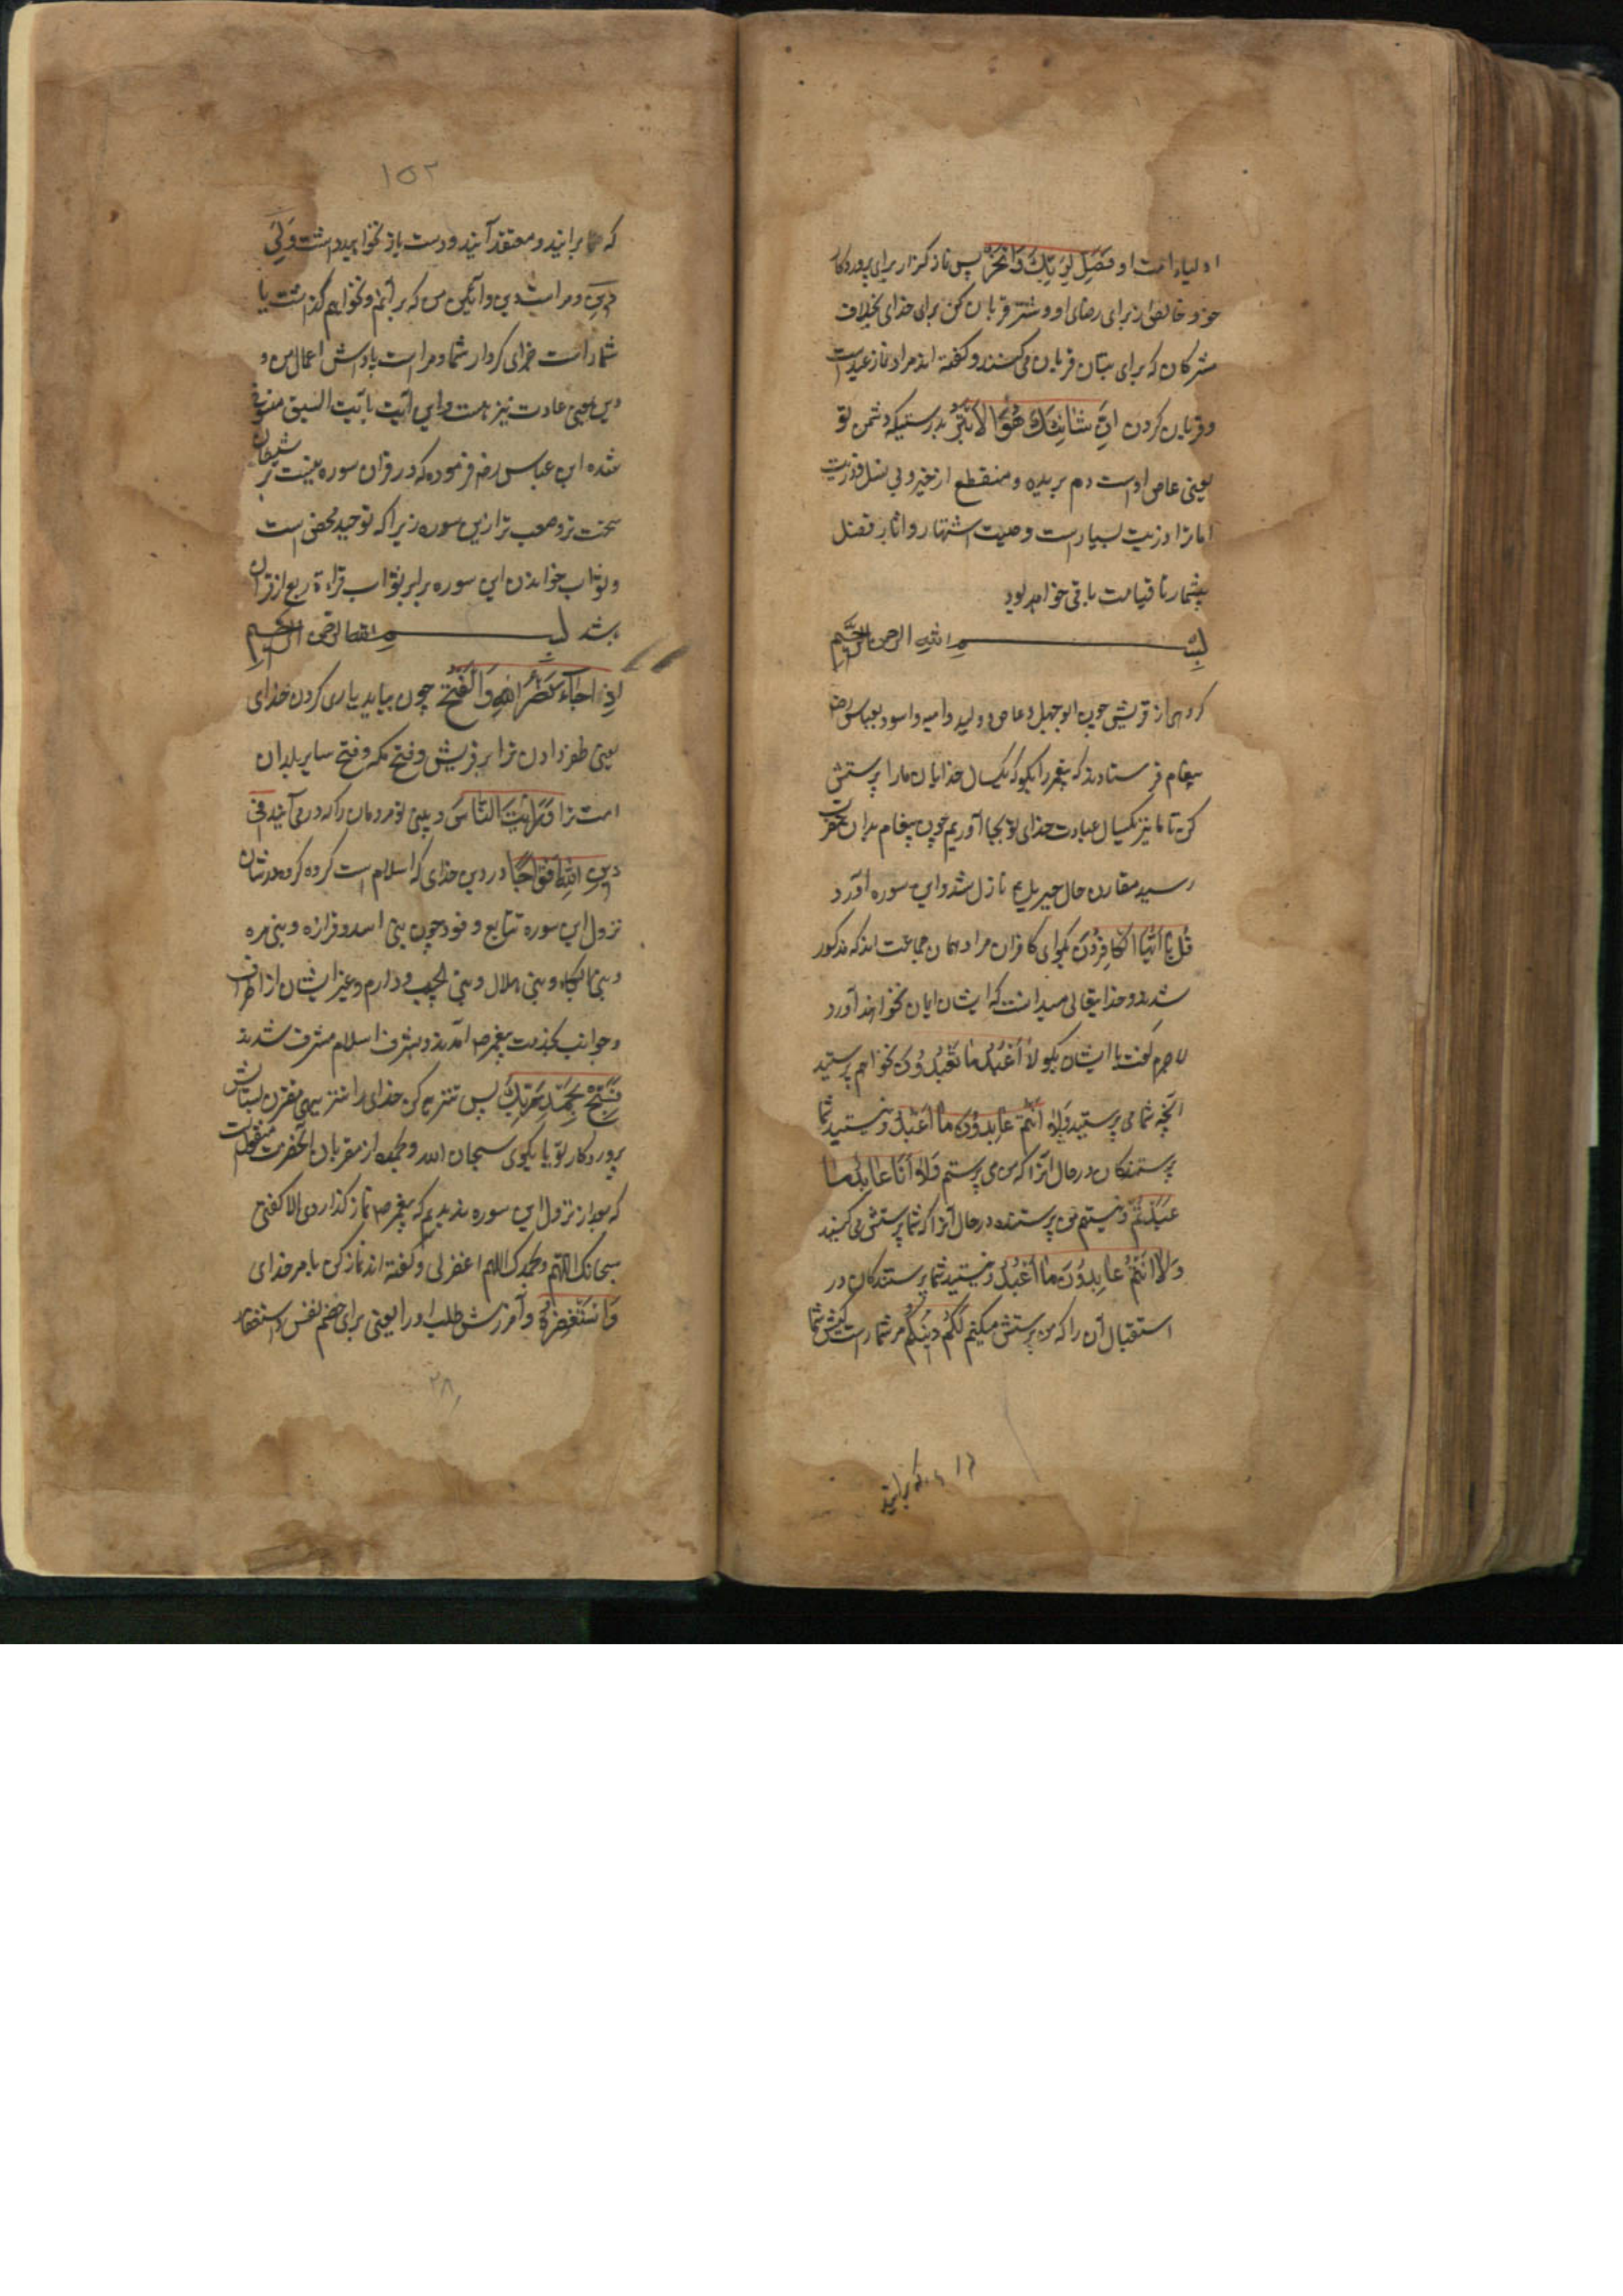 اولیاء امت او فَصَلِّ لِرَبِّكَ وَانْحَرْ پس نماز کزار برای پروردکار
خود خالص از برای رضای او و شتر قربان کن برای خدای بخلاف
مشرکان که برای بتان قربان می کنند و کفته اند مراد نماز عید است
و قربان کردن اِنَّ شَانِئَكَ هُوَ الْاَبْتَرُ بدرستیکه دشمن تو
یعنی عاص اوست دم بریده و منقطع از خیر و بی نسل و ذریت
اما ترا ذریت بسیار است و صیت اشتهار و اثار فضل
بیشمار تا قیامت باقی خواهد بود
بسم الله الرحمن الرحیم
کروهی از قریش چون ابوجهل و عاص و ولید و امیه و اسود بعباس رض
پیغام فرستادند که پیغمبر را بکو که یکسال خدایان مارا پرستش
کن تا ما نیز یکسال عبادت خدای تو بجا آوریم چون پیغام بدان حضرت
رسید مقارن حال جبریل ع نازل شد و این سوره آورد
قُلْ یَا اَیُّهَا الْکَافِرُونَ بکو ای کافران مراد همان جماعت اند که مذکور
شدند و خدایتعالی میدانست که ایشان ایمان نخواهند آورد
لاجرم کفت با ایشان بکو لَا اَعْبُدُ مَا تَعْبُدُونَ نخواهم پرستید
آنچه شما می پرستید وَلَا اَنْتُمْ عَابِدُونَ مَا اَعْبُدُ و نیستید شما
پرستندکان در حال آنرا که من می پرستم وَلَا اَنَا عَابِدٌ مَا
عَبَدْتُمْ و نیستم من پرستنده در حال آنرا که شما پرستش می کنید
وَلَا اَنْتُمْ عَابِدُونَ مَا اَعْبُدُ و نیستید شما پرستندکان در
استقبال آن را که من پرستش میکنم لَکُمْ دِینُکُمْ مر شما راست کیش شما
که برانید
۱۵۲
که برانید و معتقد آنید و دست باز نخواهید داشت وَلِیَ
دِینِ و مراست دین و آئین من که بر آنم و نخواهم کذاشت یا
شما راست جزای کردار شما و مراست پاداش اعمال من و
دین بمعنی عادت نیز هست و این آیت بآیت السیف منسوخ
شده ابن عباس رض فرموده که در قران سوره نیست بر شیطان
سخت تر و صعب تر ازین سوره زیرا که توحید محض است
و ثواب خواندن این سوره برابر ثواب قراءة ربع از قران
باشد بسم الله الرحمن الرحیم
اِذَا جَاءَ نَصْرُ اللهِ وَالْفَتْحُ چون بیاید یاری کردن خدای
یعنی ظفر دادن ترا بر قریش و فتح مکه و فتح سایر بلدان
امت ترا وَرَاَیْتَ النَّاسَ و بینی تو مردمان را که در می آیند فِی
دِینِ اللهِ اَفْوَاجًا در دین خدای که اسلام است کروه کروه
نزول این سوره تتابع وفود چون بنی اسد و فزاره و بنی مره
و بنی البکاء و بنی هلال و بنی و دارم و غیر ایشان از اطراف
و جوانب بخدمت پیغمبر ص آمدند و بشرف اسلام مشرف شدند
فَسَبِّحْ بِحَمْدِ رَبِّكَ پس تنزیه کن خدای را تنزیهی مقرون بستایش
پروردکار تو یا بکوی سبحان الله و بحمده از مقربان آنحضرت منقول است
که بعد از نزول این سوره ندیدیم که پیغمبر ص نماز کذاردی الا کفتی
سبحانک اللهم وبحمدک اللهم اغفر لی و کفته اند نماز کن بامر خدای
وَاسْتَغْفِرْهُ و آمرزش طلب او را یعنی برای هضم نفس و استغفار
۲۸